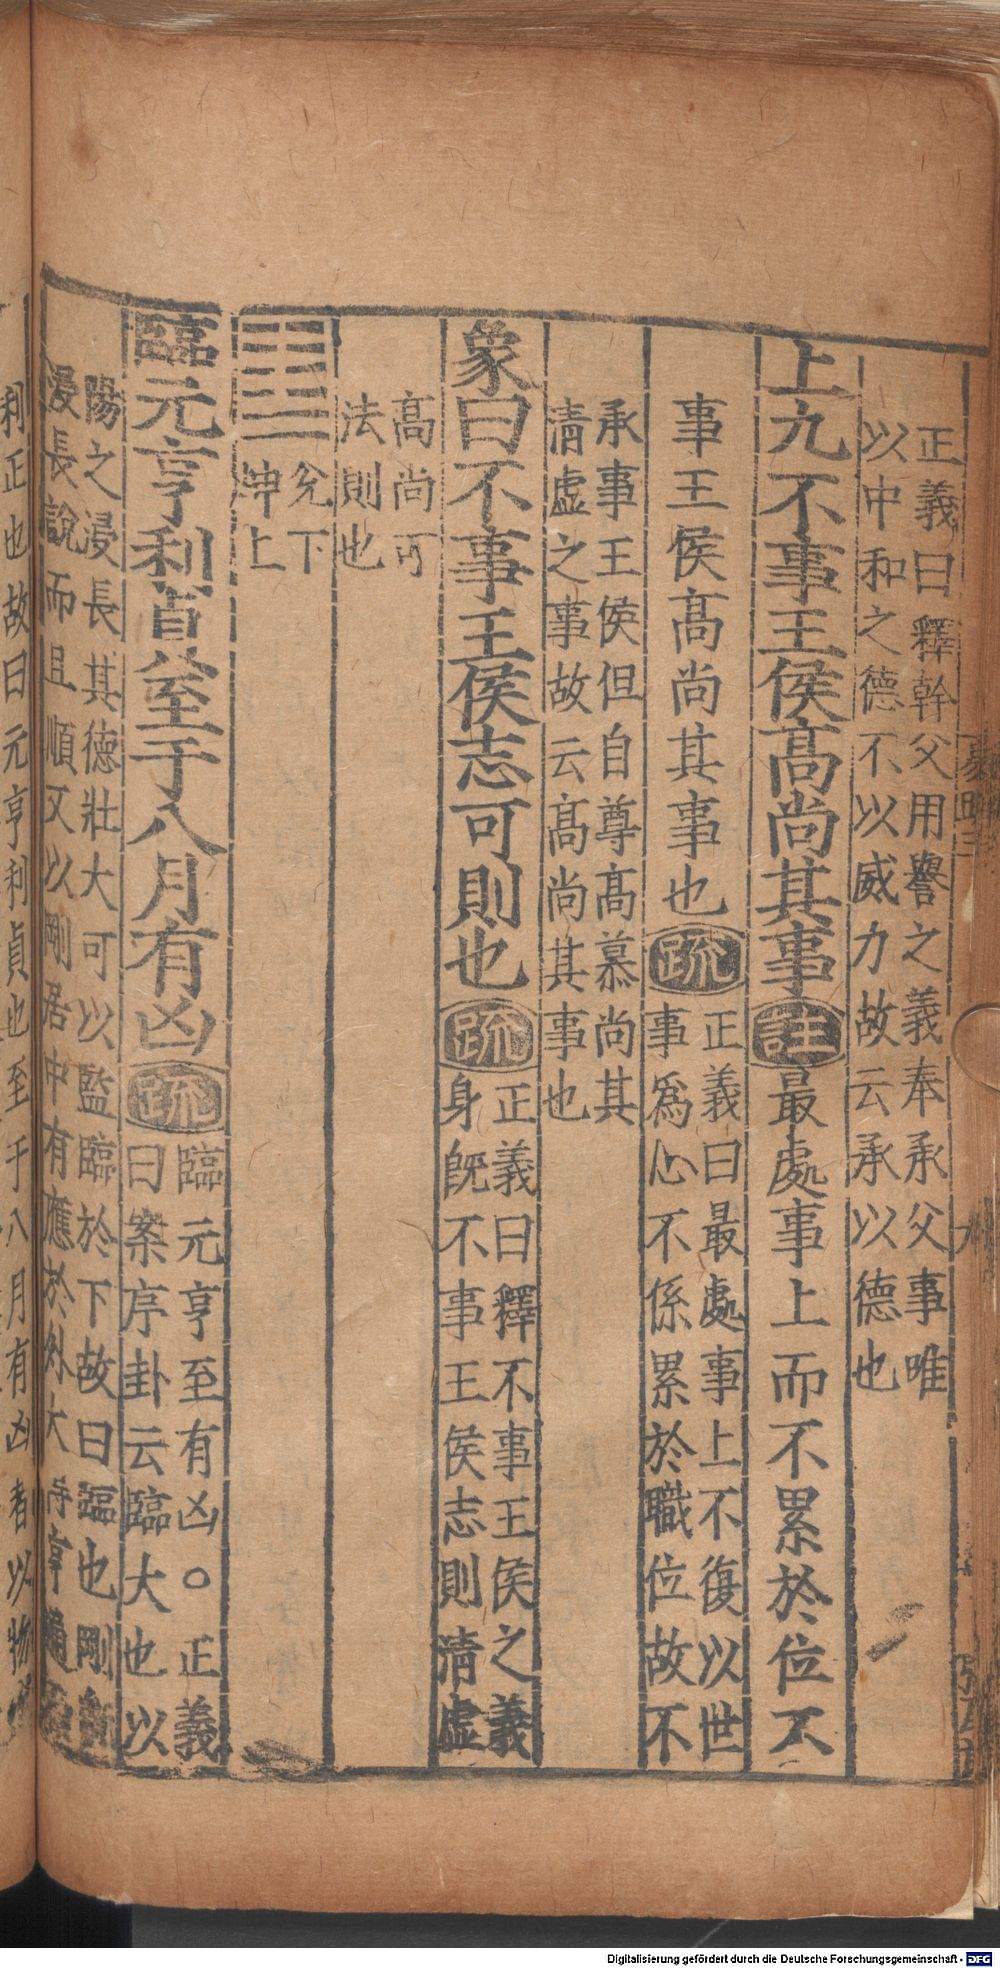 正義曰釋幹父用譽之義奉承父事唯
以中和之德不以威力故云承以德也
上九不事王侯髙尚其事註最處事上而不累於位不
事王侯髙尚其事也疏正義曰最處事上不復以世
事爲心不係累於職位故不
承事王侯但自尊髙慕尚其
清虚之事故云髙尚其事也
象曰不事王侯志可則也疏正義曰釋不事王侯之義
身旣不事王侯志則清虚
髙尚可
法則也
兊下
坤上
臨元亨利貞至于八月有凶疏臨元亨至有凶○正義
曰案序卦云臨大也以
陽之浸長其德壯大可以監臨於下故曰臨也剛旣
浸長說而且順又以剛居中有應於外大得亨通
利正也故曰元亨利貞也至于八月有凶者以物
Digitalisierung gefördert durch die Deutsche Forschungsgemeinschaft - DFG